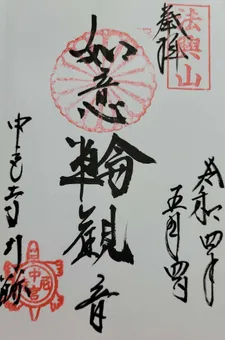 奉拝
法興山
令和四年
五月四日
如意輪觀音
中宮寺門跡